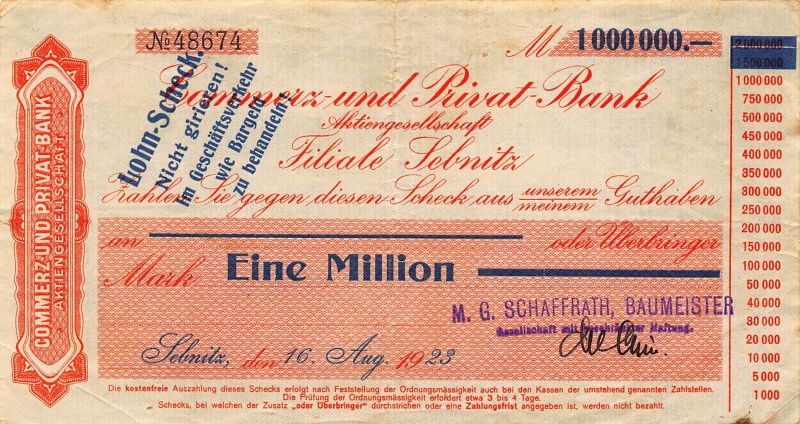 № 48674
M 1000000.—
Lohn-Scheck.
Nicht girieren!
Im Geschäftsverkehr
wie Bargeld
zu behandeln!
Commerz- und Privat-Bank
Aktiengesellschaft
Filiale Sebnitz
Zahlen Sie gegen diesen Scheck aus unserem meinem Guthaben
an oder Überbringer
Mark Eine Million
M. G. SCHAFFRATH, BAUMEISTER
Gesellschaft mit beschränkter Haftung.
Sebnitz, den 16. Aug. 1923
Die kostenfreie Auszahlung dieses Schecks erfolgt nach Feststellung der Ordnungsmässigkeit auch bei den Kassen der umstehend genannten Zahlstellen.
Die Prüfung der Ordnungsmässigkeit erfordert etwa 3 bis 4 Tage.
Schecks, bei welchen der Zusatz „oder Überbringer" durchstrichen oder eine Zahlungsfrist angegeben ist, werden nicht bezahlt.
COMMERZ-UND PRIVAT-BANK
AKTIENGESELLSCHAFT
2 000 000
1 500 000
1 000 000
750 000
500 000
450 000
400 000
350 000
300 000
250 000
200 000
150 000
100 000
50 000
40 000
30 000
20 000
10 000
5 000
1 000